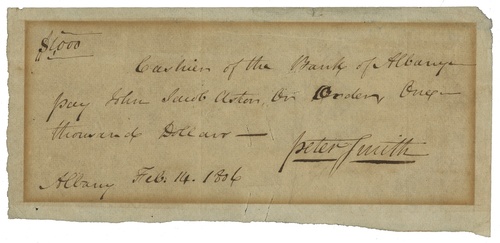 $1,000
Cashier of the Bank of Albany
pay John Jacob Astor, Or Order, One
thousand Dollars —
Peter Smith
Albany Feb. 14. 1806